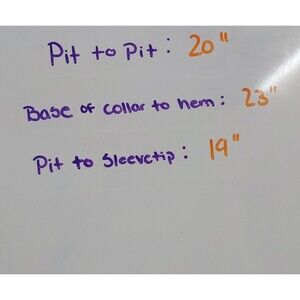 Pit to Pit: 20"
Base of collar to hem: 23"
Pit to Sleevetip: 19"